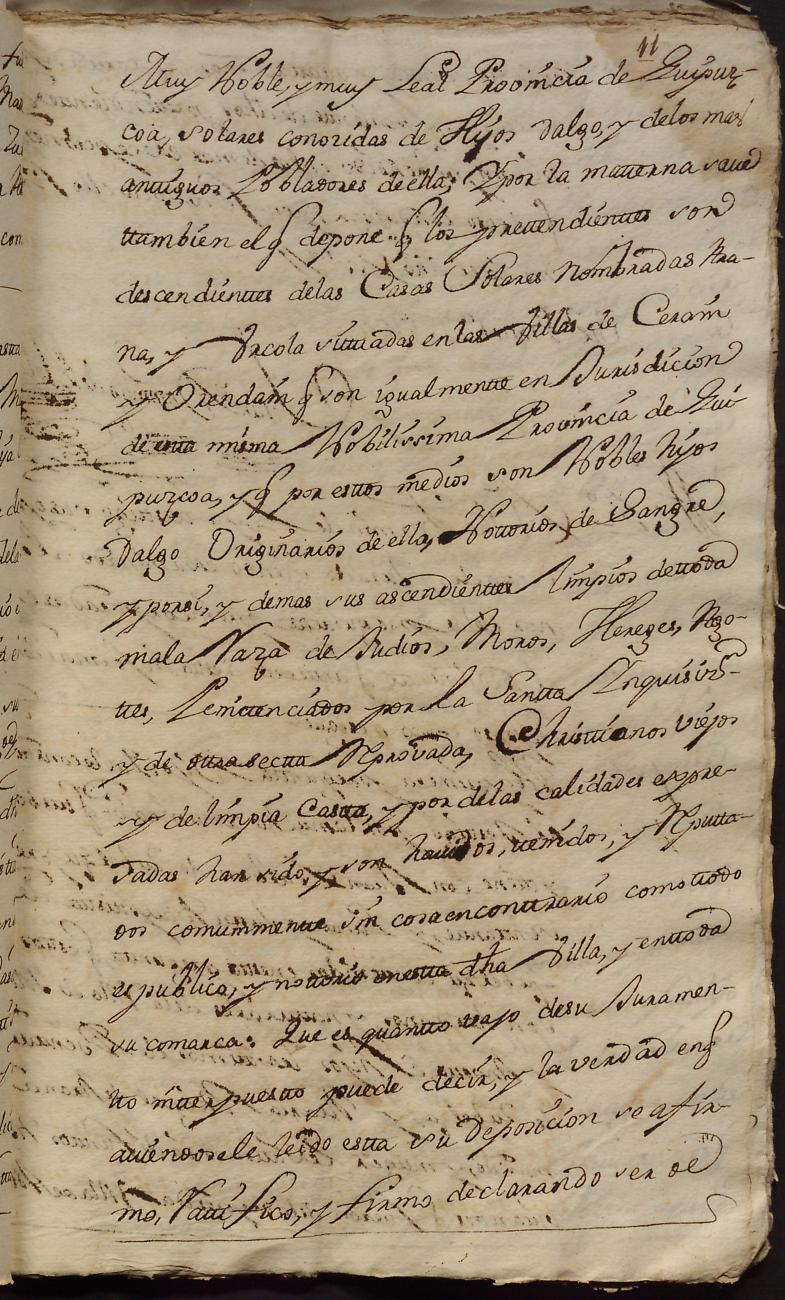 11
Muy Noble, y muy Leal Provincia de Guipuz-
coa, solares conozidas de Hijos dalgo, y delos mas
antiguos Pobladores de ella; Y por la matterna save
ttambien el q depone q los prettendienttes son
descendienttes delas Casas Solares nombradas Ara-
na, y Urcola sittuadas en las Villas de Cerain
y Orendain q son igualmentte en Jurisdicion
de esta misma Nobilissima Provincia de Gui
puzcoa, y q por esttos medios son Nobles hijos
Dalgo Originarios de ella, Nottorios de Sangre,
y porsi, y demas sus ascendienttes limpios dettoda
mala Raza de Judios, Moros, Hereges, Ago-
ttes, Penittenciados por la Santta Inquisizn
y de ottra sectta Reprovada, Christtianos viejos
y de limpia Castta, y por delas calidades expre-
sadas han sido, y son havidos, tenidos, y Reputta-
dos comunmentte sin cosa en conttrario como ttodo
es publico, y nottorio en estta dha Villa, y en ttoda
su comarca: Que es quantto vajo de su Juramen-
tto intterpuestto puede decir, y la verdad en q
aviendosele leido estta su Deposicion se afir-
mo, Rattifico, y firmo declarando ser de